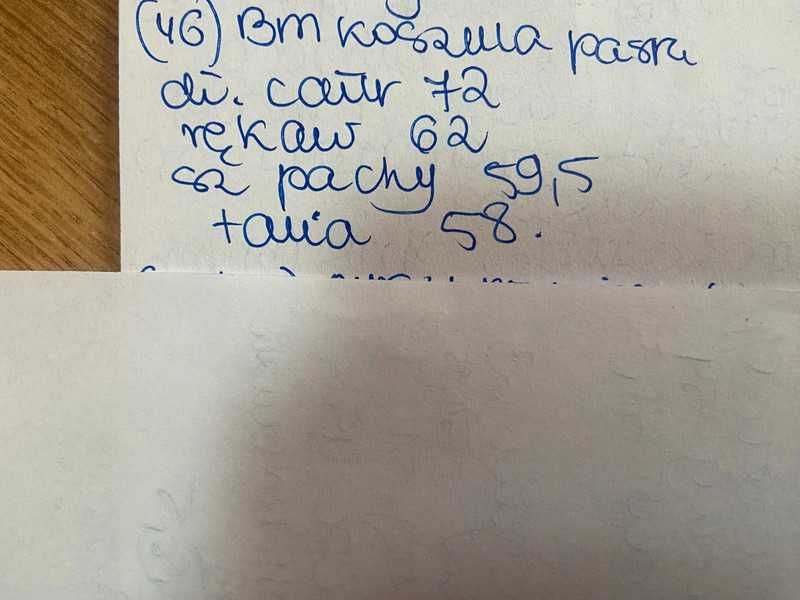 (46) Bm koszula paski
dł. całk 72
rękaw 62
sz pachy 59,5
talia 58.